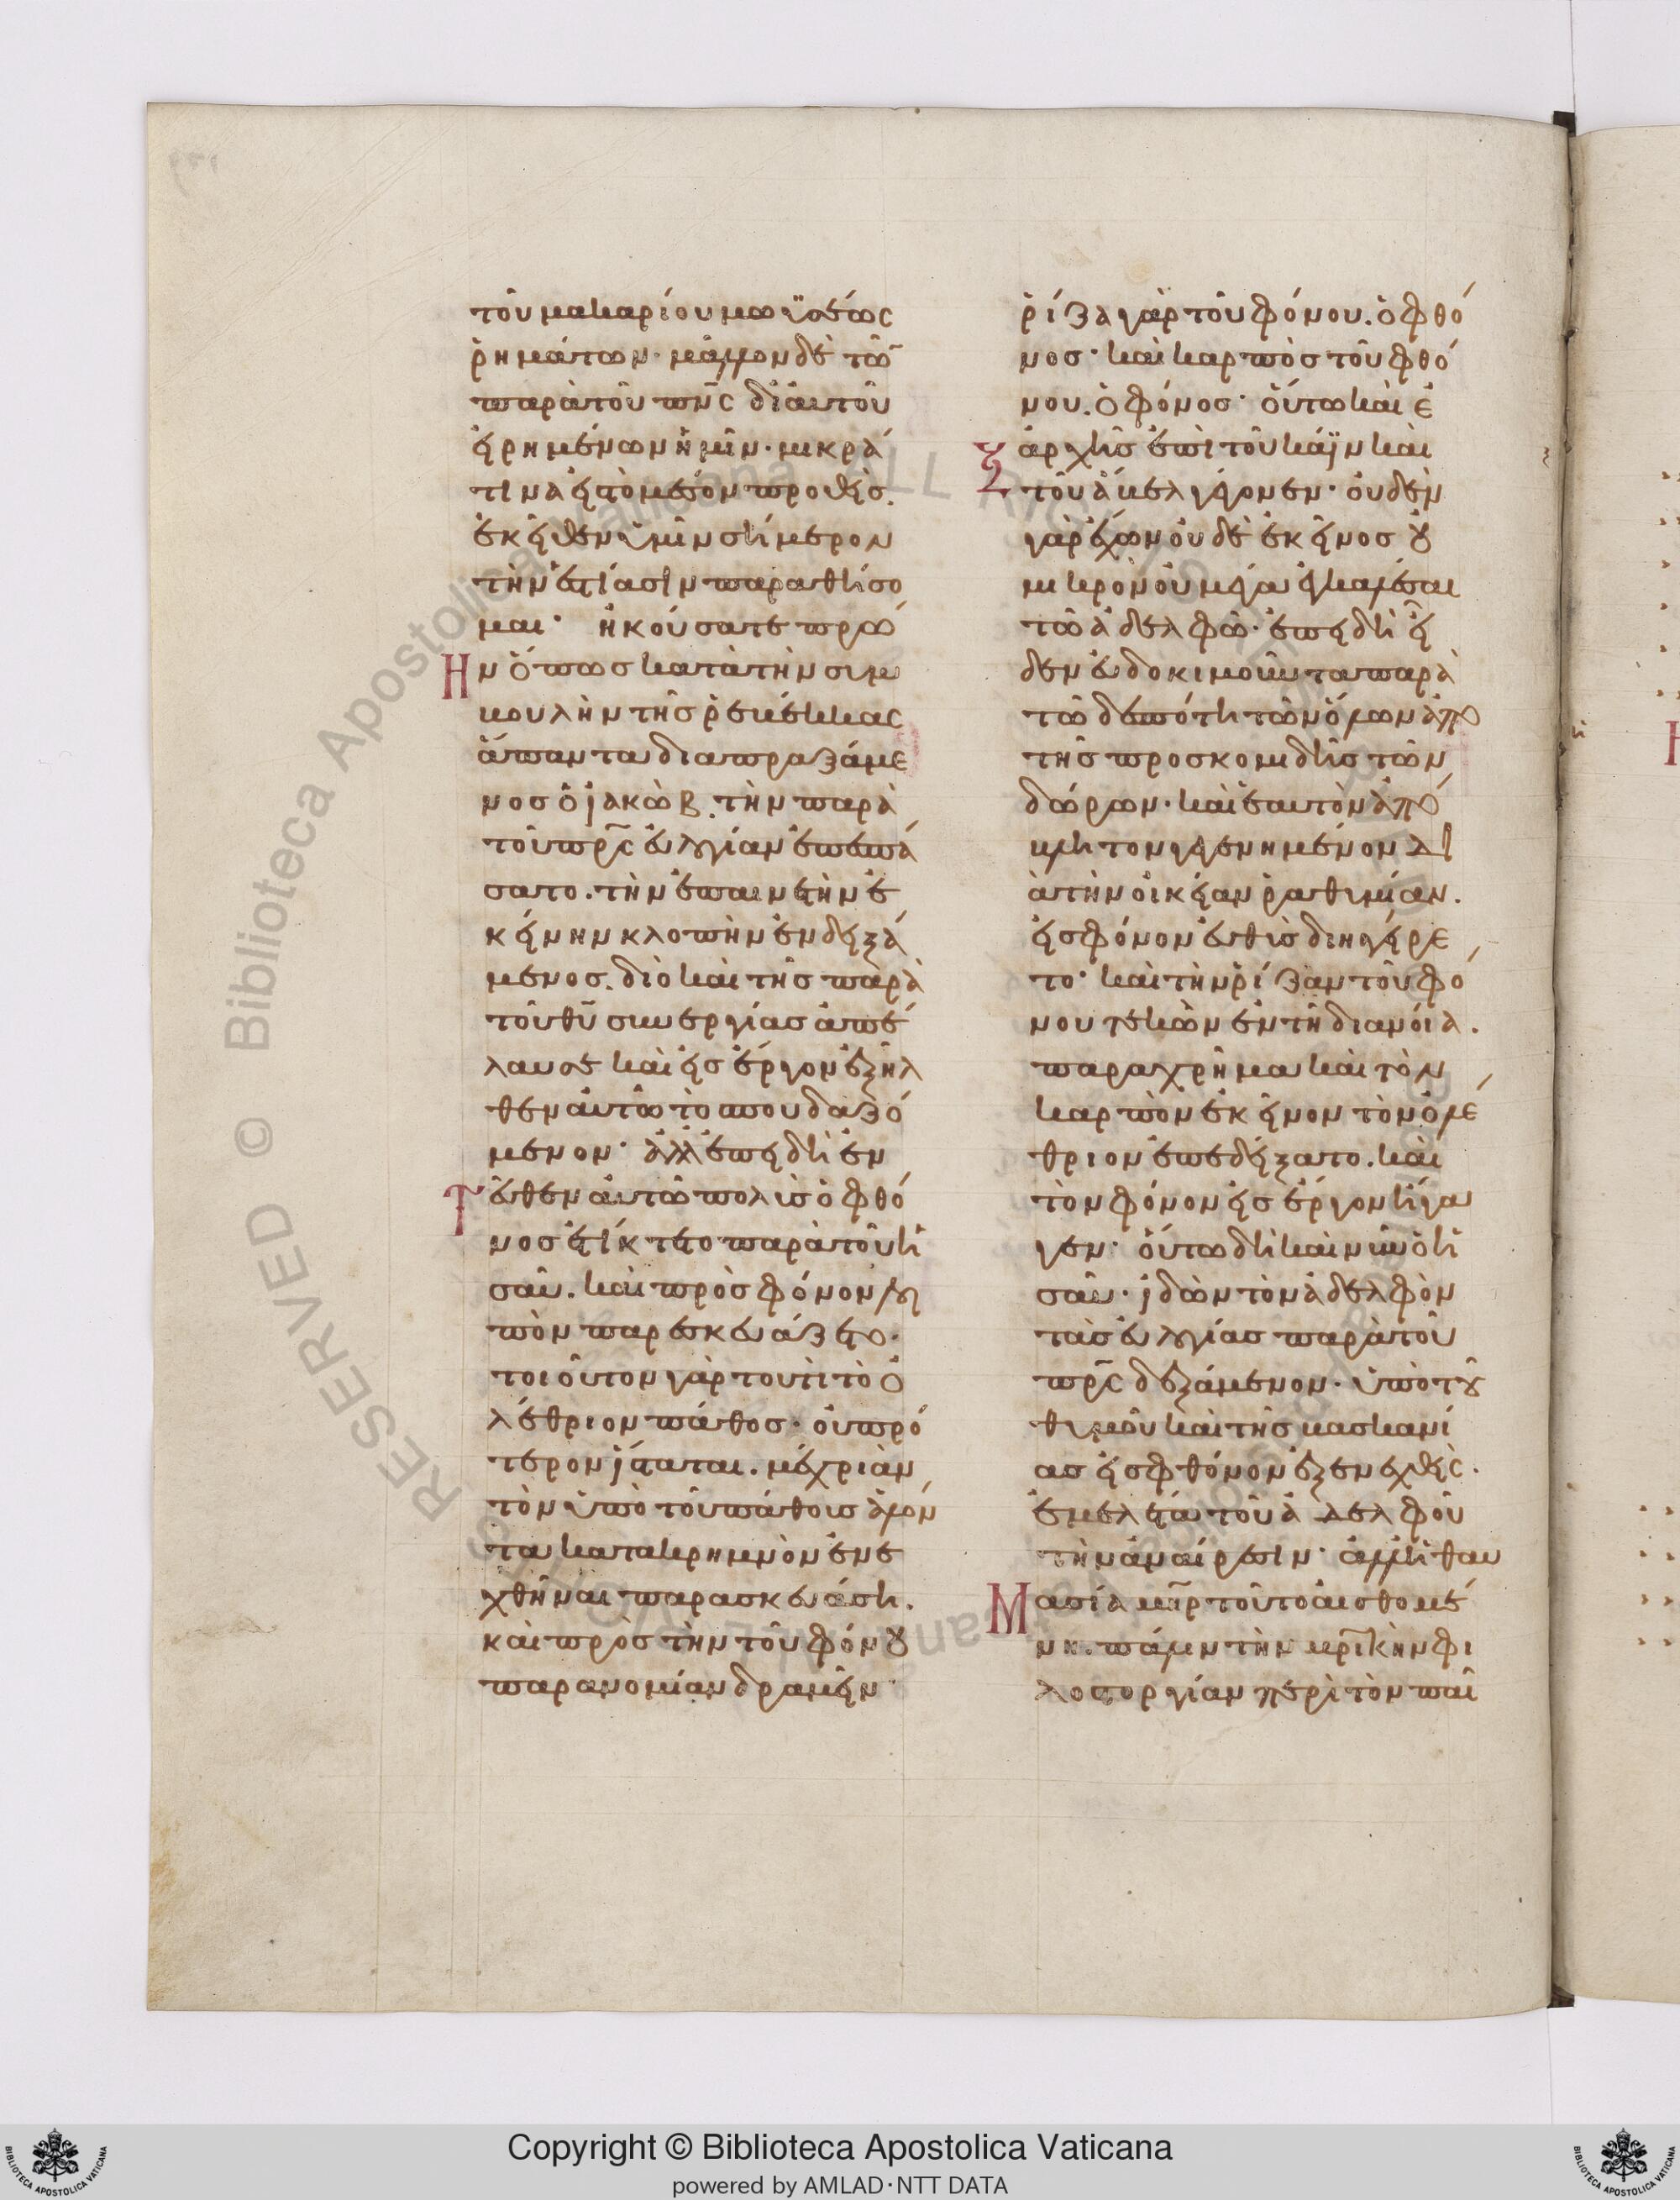 τοῦ μακαρίου μωϋσέως
ῥημάτων· μᾶλλον δὲ τῶ̅
παρὰ τοῦ πν̅ς δι' αὐτοῦ
εἰρημένων ἡμῖν· μικρά
τινα εἰς τὸ μέσον προθεὶς.
ἐκεῖθεν ὑμῖν σήμερον
τὴν ἑστίασιν παραθήσο
μαι· ἠκούσατε πρώ
ην ὅπως κατὰ τὴν συμ
βουλὴν τῆς ῥεβέκκας
ἅπαντα διαπραξάμε
νος ὁ ἰακὼβ. τὴν παρὰ
τοῦ πρ̅ς εὐλγίαν ἐπεσπά
σατο. τὴν ἐπαινετὴν ἐ
κείνην κλοπὴν ἐνδειξά
μενος. διὸ καὶ τῆς παρὰ
τοῦ θυ̅ συνεργίας ἀπέ
λαυσε καὶ εἰς ἔργον ἐξῆλ
θεν αὐτῶ τὸ σπουδαζό
μενον· ἀλλ' ἐπειδὴ ἐν
τεῦθεν αὐτῶ πολὺς ὁ φθό
νος ἐτίκτετο παρὰ τοῦ ἡ
σαῦ. καὶ πρὸς φόνον λοι
πὸν παρεσκευάζετο.
τοιοῦτον γὰρ τουτὶ τὸ ὀ
λέθριον πάθος· οὐ πρό
τερον ἵσταται. μέχρις ἂν
τὸν ὑπὸ τοῦ πάθους ἁλόν
τα κατακρημνὸν ἐνε
χθῆναι παρασκευάση.
καὶ πρὸς τὴν τοῦ φόνου
παρανομίαν δραμεῖν·
ῥίζα γὰρ τοῦ φόνου. ὁ φθό
νος· καὶ καρπὸς τοῦ φθό
νου. ὁ φόνος· οὕτω καὶ ἐ
ξαρχῆς ἐπὶ τοῦ κάϊν καὶ
τοῦ ἄβελ γέγονεν· οὐδὲν
γὰρ ἔχων οὐδὲ ἐκεῖνος οὐ
μικρὸν οὐ μέγα ἐγκαλέσαι
τῶ ἀδελφῶ· ἐπειδὴ εἶ
δεν εὐδοκιμοῦντα παρὰ
τῶ δεσπότη τῶν ὅλων ἀπὸ
τῆς προσκομιδῆς τῶν
δώρων· καὶ ἑαυτὸν ἀπό
βλητον γεγενημένον δι
ὰ τὴν οἰκείαν ῥαθυμίαν.
εἰς φόνον εὐθὺς διηγείρε
το· καὶ τὴν ῥίζαν τοῦ φό
νου τεκὼν ἐν τῆ διανοία.
παραχρῆμα καὶ τὸν
καρπὸν ἐκεῖνον τὸν ὀλέ
θριον ἐπεδείξατο. καὶ
τὸν φόνον εἰς ἔργον ἤγα
γεν· οὕτω δὴ καὶ νῦν ὁ ἡ
σαῦ· ἰδὼν τὸν ἀδελφὸν
τὰς εὐλγίας παρὰ τοῦ
πρ̅ς δεξάμενον· ὑπὸ τοῦ
θυμοῦ καὶ τῆς βασκανί
ας εἰς φθόνον ἐξενεχθεὶς.
ἐμελέτα τοῦ ἀδελφοῦ
τὴν ἀναίρεσιν· ἀλλ' ἡ θαυ
μασία μη̅ρ τοῦτο αἰσθομέ
νη. πάλιν τὴν μρ̅ικὴν φι
λοστοργίαν περὶ τὸν παῖ